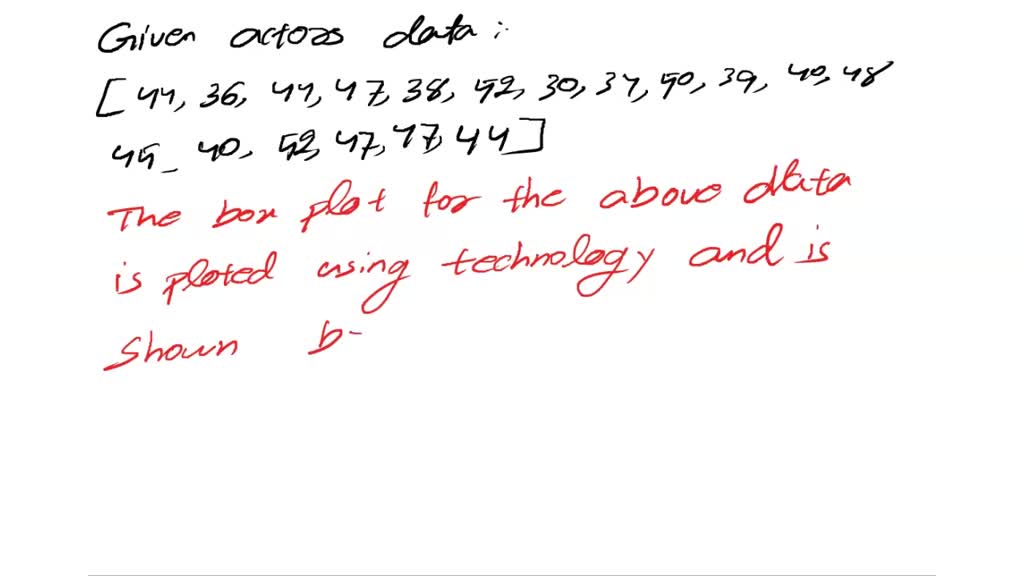 Given actors data :
[ 44, 36, 44, 47, 38, 52, 30, 37, 50, 39, 40, 48
45_ 40, 52, 47, 47, 44 ]
The box plot for the above data
is ploted using technology and is
Shown b